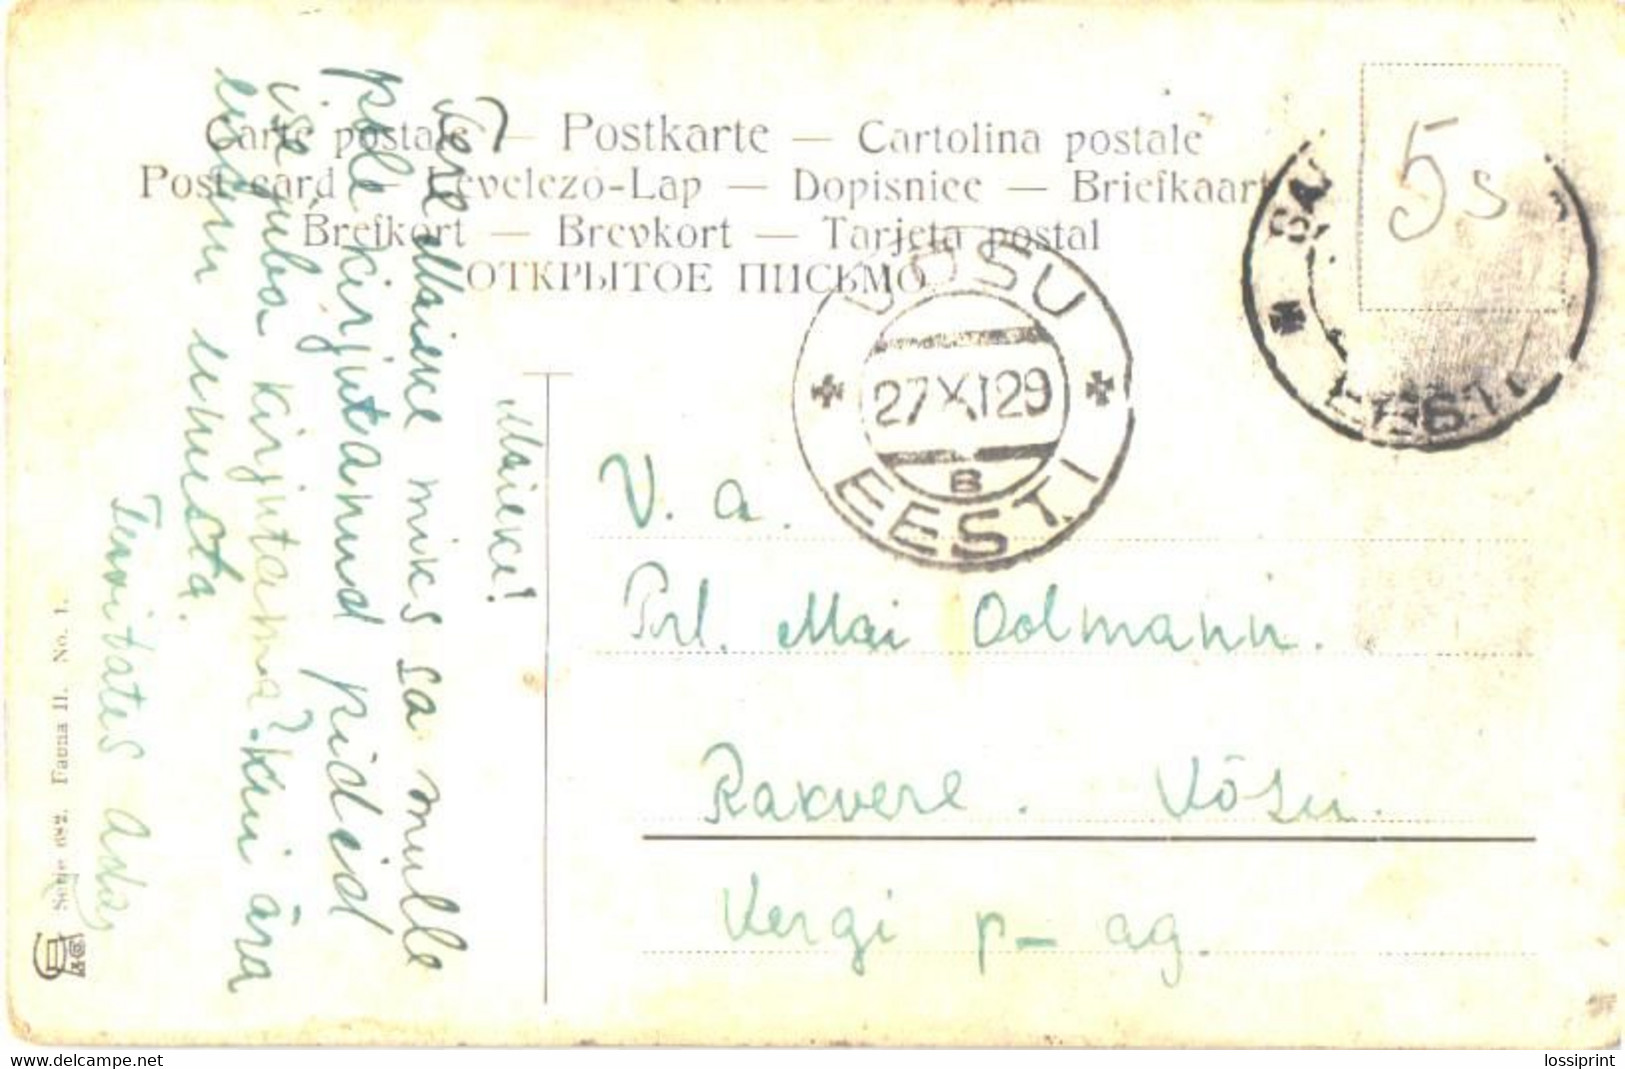 Carte postale — Postkarte — Cartolina postale
Post card — Levelezö-Lap — Dopisnice — Briefkaart
Brefkort — Brevkort — Tarjeta postal
ОТКРЫТОЕ ПИСЬМО
5 s
EESTI
VÕSU
27 XI 29
B
EESTI
Maieke!
Tere Maieke miks sa mulle
pole kirjutanud pidid
ise juba kirjutama? Kui ära
enam unusta.
Tervitates Ada
V. a.
Prl. Mai Oolmann.
Rakvere. Võsu.
Vergi p–ag.
Serie 682. Fauna II. No. 1.
delcampe.net
lossiprint